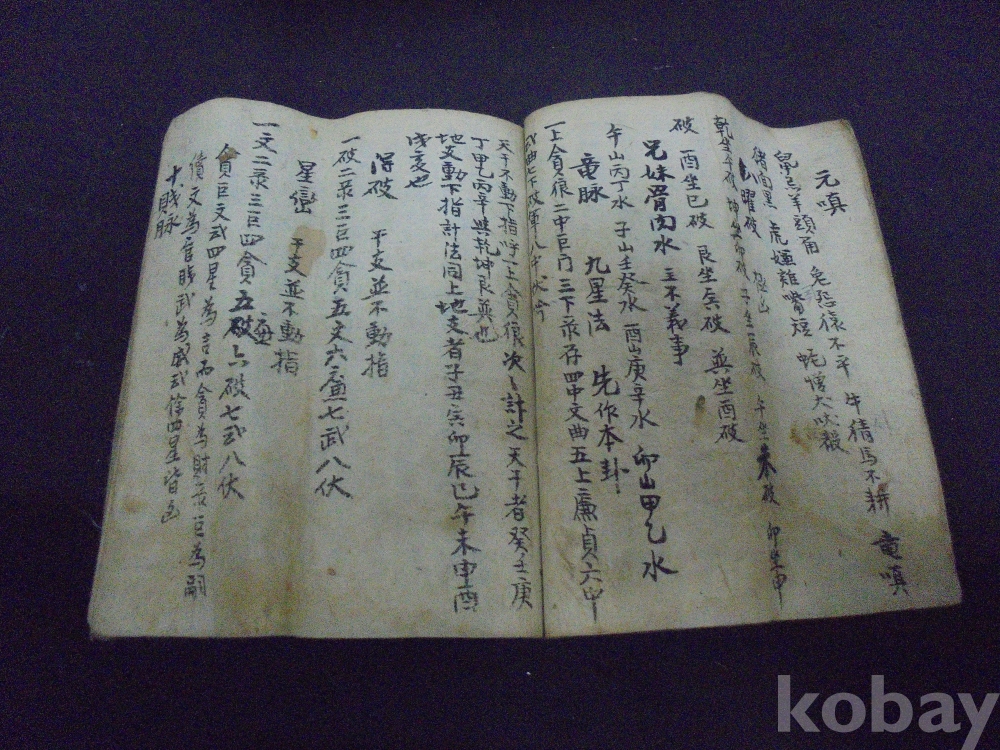 元嗔
鼠忌羊頭角 兔怨猴不平 牛猜馬不耕 竜嗔
猪面黑 虎嫌雞嘴短 蛇憎犬吠聲
曜破
乾坐午破 坤坐卯破 子坐 破 午坐 破 卯坐申
破 酉坐巳破 艮坐 破 巽坐酉破
兄妹骨肉水 主不義事
午山丙丁水 子山壬癸水 酉山庚辛水 卯山甲乙水
竜脉 九星法 先作本卦
一上貪狼二中巨門三下彔存四中文曲五上廉貞六中
武曲七下破軍八中
天干不動下指呼上貪狼次々計之天干者癸壬庚
丁甲乙丙辛與乾坤艮巽也
地支動下指計法同上地支者子丑寅卯辰巳午未申酉
戌亥也
得破 干支並不動指
一破二彔三巨四貪五文六廉七武八伏
星巒 干支並不動指
一文二彔三巨四貪五破六破七武八伏
廉
貪巨文武四星為吉而貪為財彔巨為嗣
債文為官賤武為威武餘四星皆凶
十賤脉
kobay